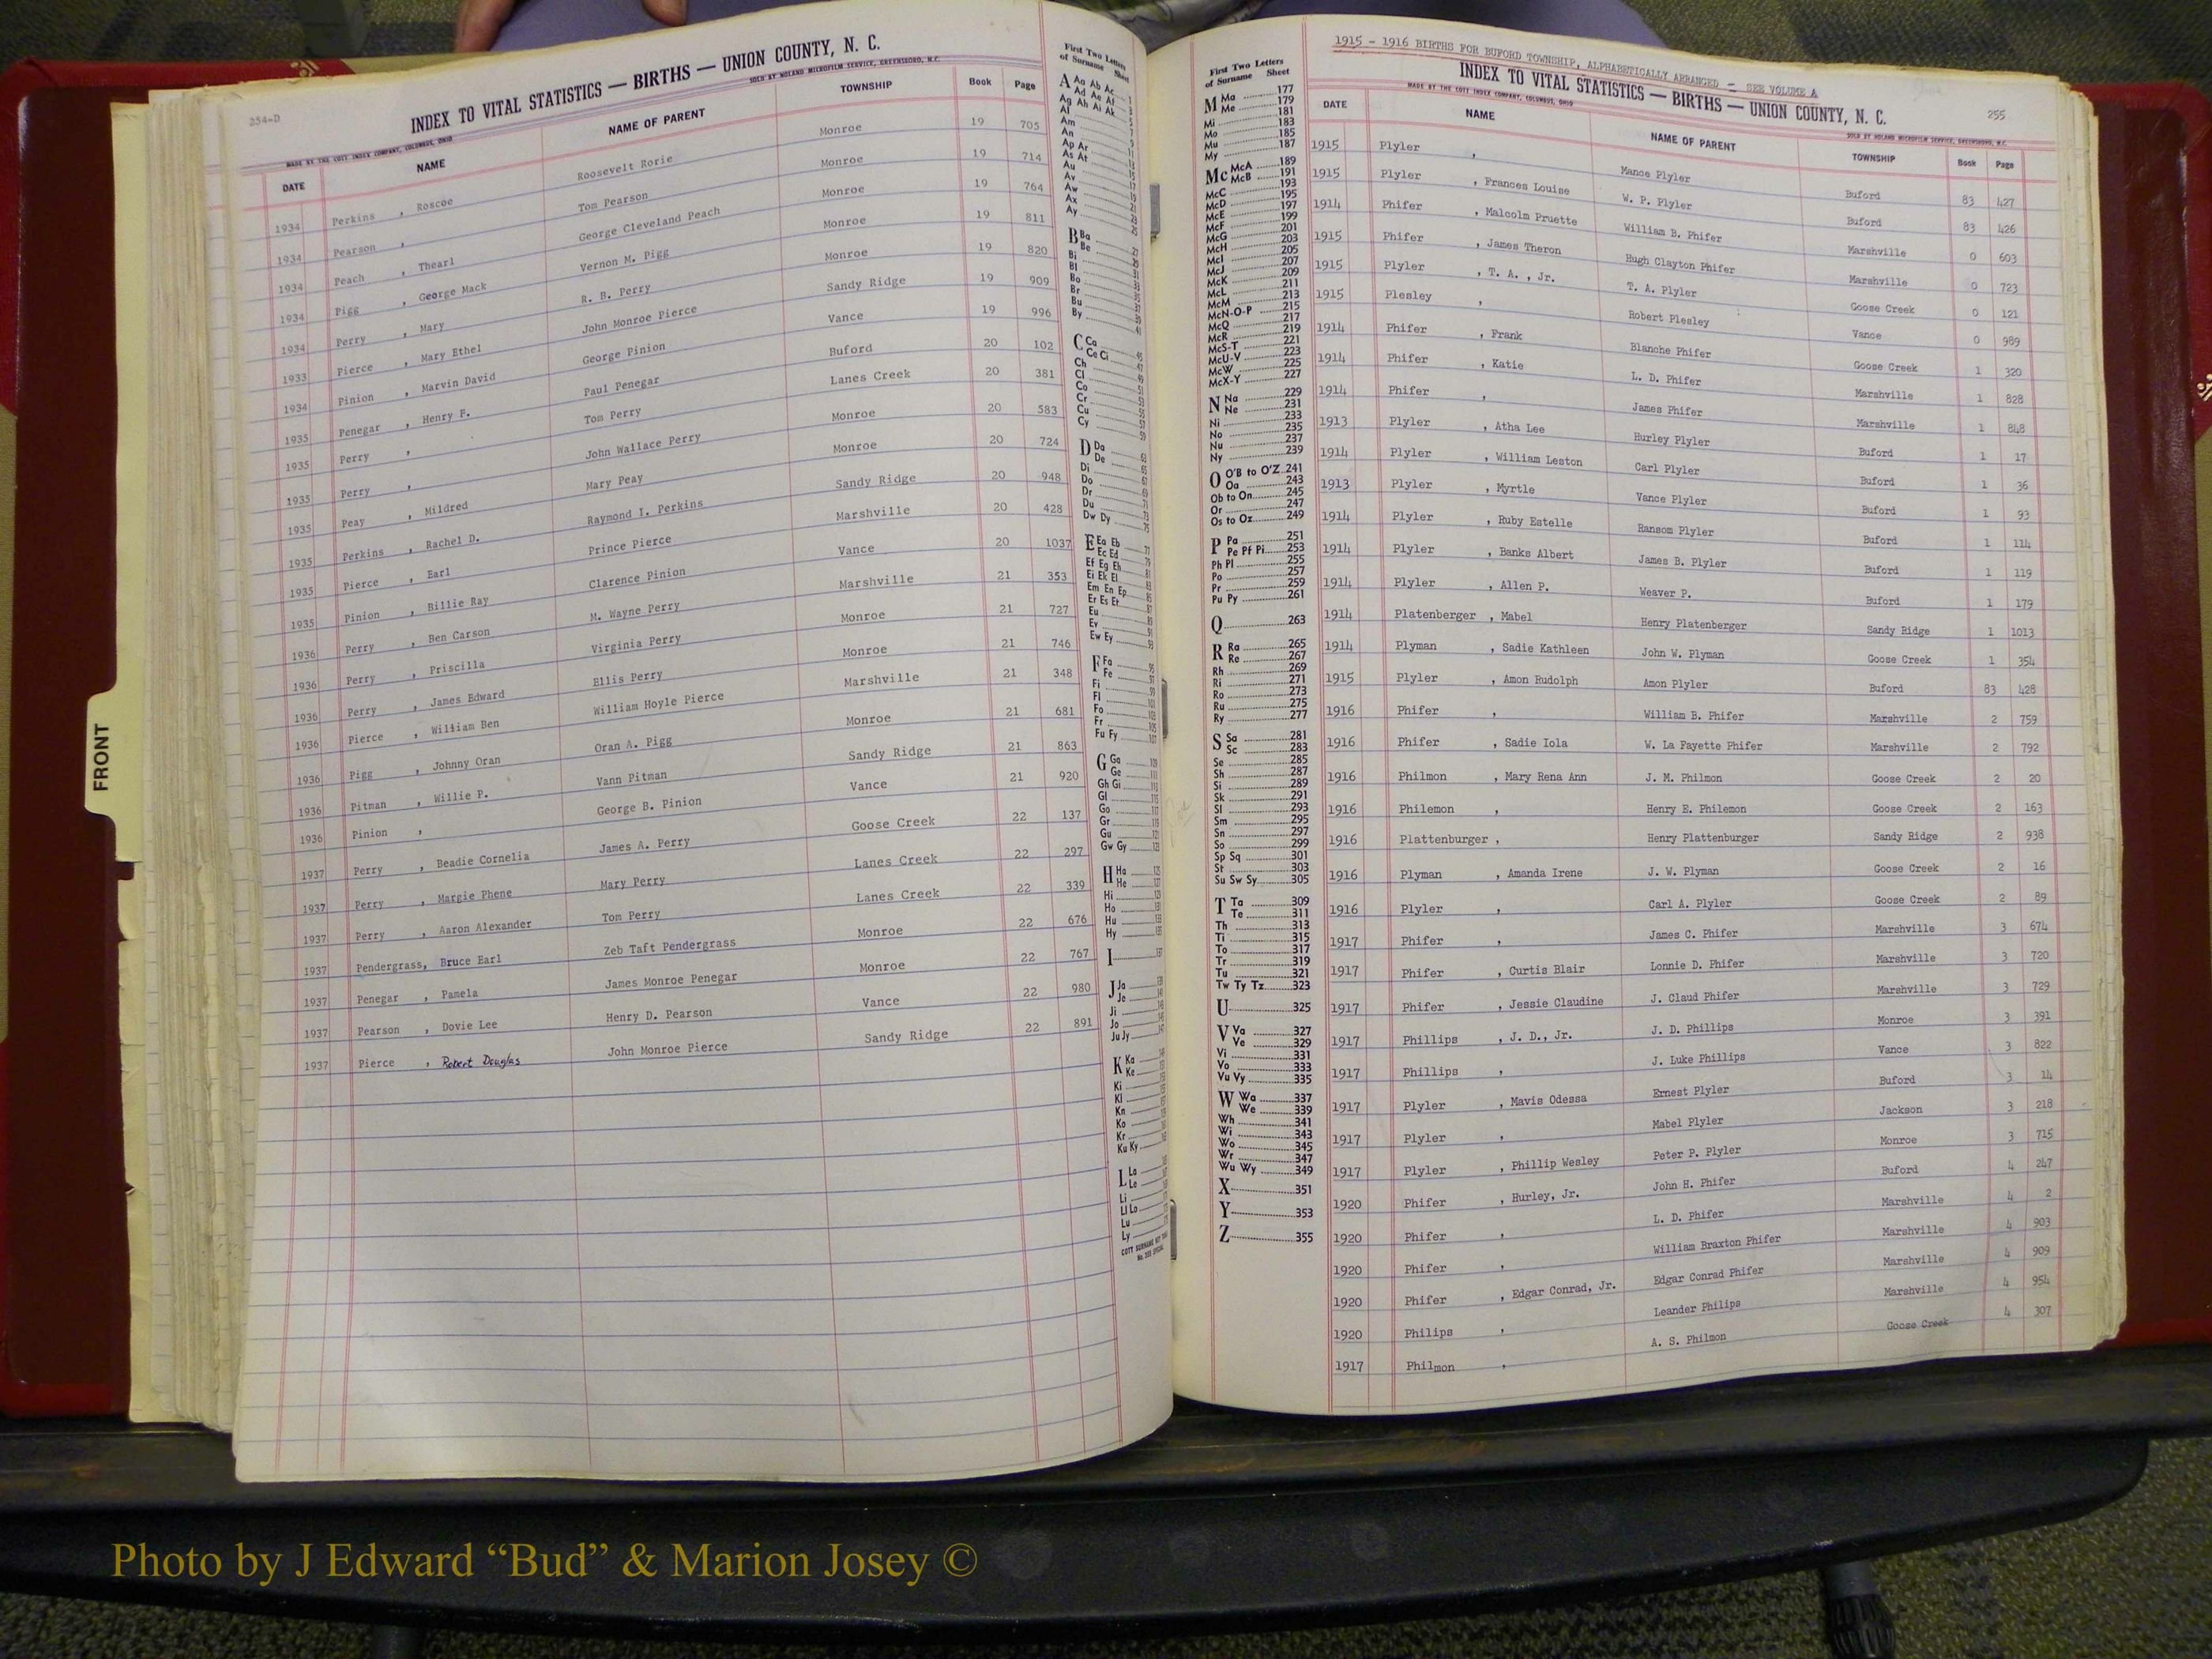 254-D
INDEX TO VITAL STATISTICS — BIRTHS — UNION COUNTY, N. C.
MADE BY THE COTT INDEX COMPANY, COLUMBUS, OHIO SOLD BY NOLAND MICROFILM SERVICE, GREENSBORO, N.C.
DATE NAME NAME OF PARENT TOWNSHIP Book Page
1934 Perkins , Roscoe Roosevelt Rorie Monroe 19 705
1934 Pearson , Tom Pearson Monroe 19 714
1934 Peach , Thearl George Cleveland Peach Monroe 19 764
1934 Pigg , George Mack Vernon M. Pigg Monroe 19 811
1934 Perry , Mary R. B. Perry Monroe 19 820
1933 Pierce , Mary Ethel John Monroe Pierce Sandy Ridge 19 909
1934 Pinion , Marvin David George Pinion Vance 19 996
1935 Penegar , Henry F. Paul Penegar Buford 20 102
1935 Perry , Tom Perry Lanes Creek 20 381
1935 Perry , John Wallace Perry Monroe 20 583
1935 Peay , Mildred Mary Peay Monroe 20 724
1935 Perkins , Rachel D. Raymond I. Perkins Sandy Ridge 20 948
1935 Pierce , Earl Prince Pierce Marshville 20 428
1935 Pinion , Billie Ray Clarence Pinion Vance 20 1037
1936 Perry , Ben Carson M. Wayne Perry Marshville 21 353
1936 Perry , Priscilla Virginia Perry Monroe 21 727
1936 Perry , James Edward Ellis Perry Monroe 21 746
1936 Pierce , William Ben William Hoyle Pierce Marshville 21 348
1936 Pigg , Johnny Oran Oran A. Pigg Monroe 21 681
1936 Pitman , Willie P. Vann Pitman Sandy Ridge 21 863
1936 Pinion , George B. Pinion Vance 21 920
1937 Perry , Beadie Cornelia James A. Perry Goose Creek 22 137
1937 Perry , Margie Phene Mary Perry Lanes Creek 22 297
1937 Perry , Aaron Alexander Tom Perry Lanes Creek 22 339
1937 Pendergrass, Bruce Earl Zeb Taft Pendergrass Monroe 22 676
1937 Penegar , Pamela James Monroe Penegar Monroe 22 767
1937 Pearson , Dovie Lee Henry D. Pearson Vance 22 980
1937 Pierce , Robert Douglas John Monroe Pierce Sandy Ridge 22 891
FRONT
First Two Letters
of Surname Sheet
A Aa Ab Ac
Ad Ae Af
Ag Ah Ai Ak
Al
Am
An
Ap Ar
As At
Au
Av
Aw
Ax
Ay
B Ba
Be
Bi
Bl
Bo
Br
Bu
By
C Ca
Ce Ci
Ch
Cl
Co
Cr
Cu
Cy
D Da
De
Di
Do
Dr
Du
Dw Dy
E Ea Eb
Ec Ed
Ef Eg Eh
Ei Ek El
Em En Ep
Er Es Et
Eu
Ev
Ew Ey
F Fa
Fe
Fi
Fl
Fo
Fr
Fu Fy
G Ga
Ge
Gh Gi
Gl
Go
Gr
Gu
Gw Gy
H Ha
He
Hi
Ho
Hu
Hy
I
J Ja
Je
Ji
Jo
Ju Jy
K Ka
Ke
Ki
Kl
Kn
Ko
Kr
Ku Ky
L La
Le
Li
Ll Lo
Lu
Ly
First Two Letters
of Surname Sheet
M Ma 177
Me 179
Mi 181
Mo 183
Mu 185
My 187
Mc McA 189
McB 191
McC 193
McD 195
McE 197
McF 199
McG 201
McH 203
McI 205
McJ 207
McK 209
McL 211
McM 213
McN-O-P 215
McQ 217
McR 219
McS-T 221
McU-V 223
McW 225
McX-Y 227
N Na 229
Ne 231
Ni 233
No 235
Nu 237
Ny 239
O O'B to O'Z 241
Oa 243
Ob to On 245
Or 247
Os to Oz 249
P Pa 251
Pe Pf Pi 253
Ph Pl 255
Po 257
Pr 259
Pu Py 261
Q 263
R Ra 265
Re 267
Rh 269
Ri 271
Ro 273
Ru 275
Ry 277
S Sa 281
Sc 283
Se 285
Sh 287
Si 289
Sk 291
Sl 293
Sm 295
Sn 297
So 299
Sp Sq 301
St 303
Su Sw Sy 305
T Ta 309
Te 311
Th 313
Ti 315
To 317
Tr 319
Tu 321
Tw Ty Tz 323
U 325
V Va 327
Ve 329
Vi 331
Vo 333
Vu Vy 335
W Wa 337
We 339
Wh 341
Wi 343
Wo 345
Wr 347
Wu Wy 349
X 351
Y 353
Z 355
1915 - 1916 BIRTHS FOR BUFORD TOWNSHIP, ALPHABETICALLY ARRANGED - SEE VOLUME A
INDEX TO VITAL STATISTICS — BIRTHS — UNION COUNTY, N. C. 255
MADE BY THE COTT INDEX COMPANY, COLUMBUS, OHIO SOLD BY NOLAND MICROFILM SERVICE, GREENSBORO, N.C.
DATE NAME NAME OF PARENT TOWNSHIP Book Page
1915 Plyler , Mance Plyler Buford 83 427
1915 Plyler , Frances Louise W. P. Plyler Buford 83 426
1914 Phifer , Malcolm Pruette William B. Phifer Marshville 0 603
1915 Phifer , James Theron Hugh Clayton Phifer Marshville 0 723
1915 Plyler , T. A. , Jr. T. A. Plyler Goose Creek 0 121
1915 Plesley , Robert Plesley Vance 0 989
1914 Phifer , Frank Blanche Phifer Goose Creek 1 320
1914 Phifer , Katie L. D. Phifer Marshville 1 828
1914 Phifer , James Phifer Marshville 1 848
1913 Plyler , Atha Lee Hurley Plyler Buford 1 17
1914 Plyler , William Leston Carl Plyler Buford 1 36
1913 Plyler , Myrtle Vance Plyler Buford 1 93
1914 Plyler , Ruby Estelle Ransom Plyler Buford 1 114
1914 Plyler , Banks Albert James B. Plyler Buford 1 119
1914 Plyler , Allen P. Weaver P. Buford 1 179
1914 Platenberger , Mabel Henry Platenberger Sandy Ridge 1 1013
1914 Plyman , Sadie Kathleen John W. Plyman Goose Creek 1 354
1915 Plyler , Amon Rudolph Amon Plyler Buford 83 428
1916 Phifer , William B. Phifer Marshville 2 759
1916 Phifer , Sadie Iola W. La Fayette Phifer Marshville 2 792
1916 Philmon , Mary Rena Ann J. M. Philmon Goose Creek 2 20
1916 Philemon , Henry E. Philemon Goose Creek 2 163
1916 Plattenburger , Henry Plattenburger Sandy Ridge 2 938
1916 Plyman , Amanda Irene J. W. Plyman Goose Creek 2 16
1916 Plyler , Carl A. Plyler Goose Creek 2 89
1917 Phifer , James C. Phifer Marshville 3 674
1917 Phifer , Curtis Blair Lonnie D. Phifer Marshville 3 720
1917 Phifer , Jessie Claudine J. Claud Phifer Marshville 3 729
1917 Phillips , J. D., Jr. J. D. Phillips Monroe 3 391
1917 Phillips , J. Luke Phillips Vance 3 822
1917 Plyler , Mavis Odessa Ernest Plyler Buford 3 14
1917 Plyler , Mabel Plyler Jackson 3 218
1917 Plyler , Phillip Wesley Peter P. Plyler Monroe 3 715
1920 Phifer , Hurley, Jr. John H. Phifer Buford 4 247
1920 Phifer , L. D. Phifer Marshville 4 2
1920 Phifer , William Braxton Phifer Marshville 4 903
1920 Phifer , Edgar Conrad, Jr. Edgar Conrad Phifer Marshville 4 909
1920 Philips , Leander Philips Marshville 4 954
1917 Philmon , A. S. Philmon Goose Creek 4 307
Photo by J Edward “Bud” & Marion Josey ©